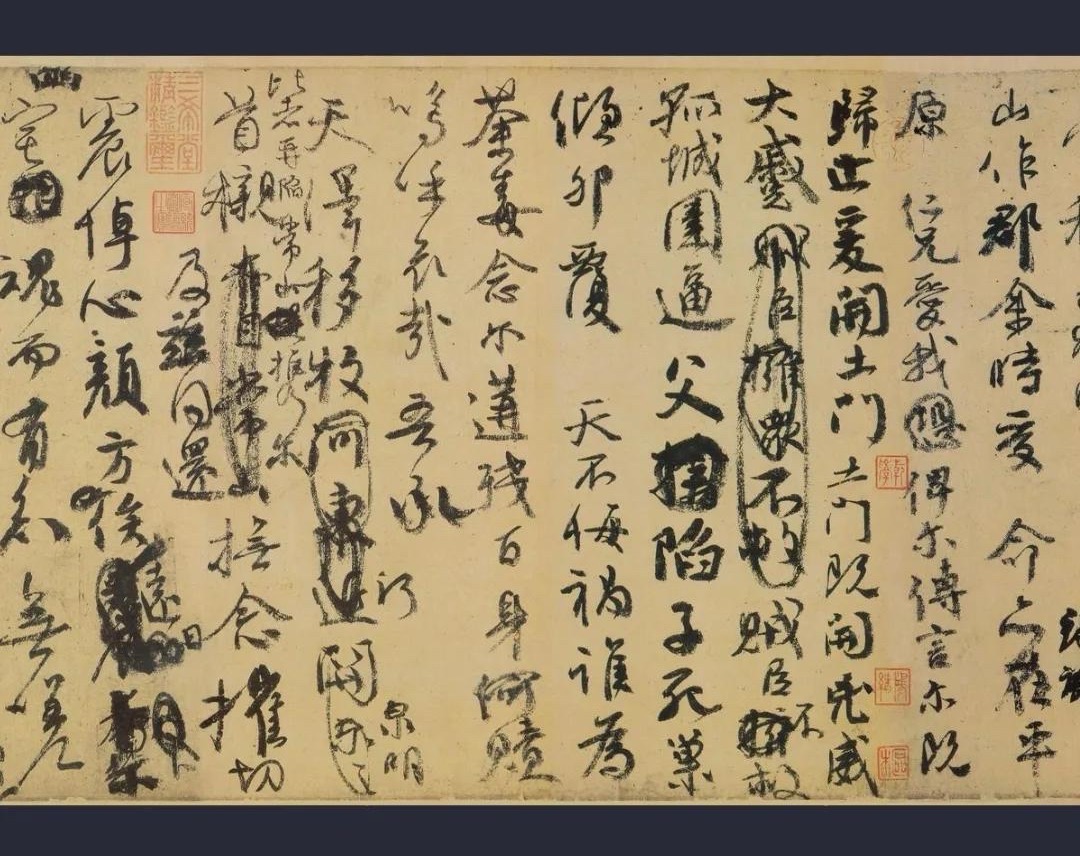 山作郡余時受命亦在平
原仁兄愛我恐俾爾傳言爾既
歸止爰開土門土門既開凶威
大蹙賊臣擁眾不救賊臣不救
孤城圍逼父陷子死巢
傾卵覆天不悔禍誰為
荼毒念爾遘殘百身何贖
嗚乎哀哉吾承
天澤移牧河東近河關
泉明
比者再陷常山攜爾
首櫬常山撫念摧切
及茲同還
震悼心顏方俟遠日
宅魂而有知無嗟